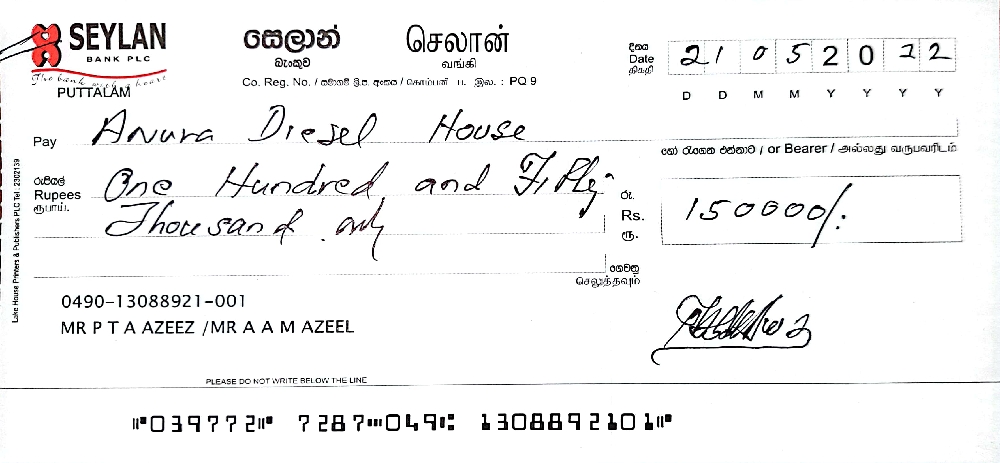 SEYLAN
BANK PLC
The bank with a heart
PUTTALAM
සෙලාන්
බැංකුව
செலான்
வங்கி
Co. Reg. No. / සමාගම් ලි.ප. අංකය / கொம்பனி ப. இல. : PQ 9
දිනය
Date
திகதி
2 1 0 5 2 0 2 2
D D M M Y Y Y Y
Pay Anura Diesel House
හෝ රැගෙන එන්නාට / or Bearer / அல்லது வருபவரிடம்
රුපියල්
Rupees
ரூபாய்.
One Hundred and Fifty
Thousand only
රු.
Rs. 150000/.
ரூ.
ගෙවනු
செலுத்தவும்
0490-13088921-001
MR P T A AZEEZ /MR A A M AZEEL
PLEASE DO NOT WRITE BELOW THE LINE
⑈039772⑈ 7287⑉049⑆ 1308892101⑈
Lake House Printers & Publishers PLC Tel : 2302139